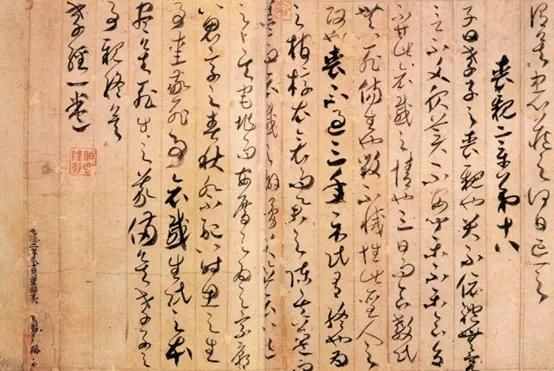 謂矣忠心藏之何日忘之
喪親章第十八
子曰孝子之喪親也哭不偯禮無容
言不文服美不安聞樂不樂食旨
不甘此哀戚之情也三日而食教民
無以死傷生也毀不滅性此聖人之
政也喪不過三年示民有終也為
之棺槨衣衾而舉之陳其簠簋
而哀戚之擗踊哭泣哀以送
之卜其宅兆而安厝之為之宗廟
以鬼享之春秋祭祀以時思之生
事愛敬死事哀戚生民之本
盡矣死生之義備矣孝子之
事親終矣
孝經一卷